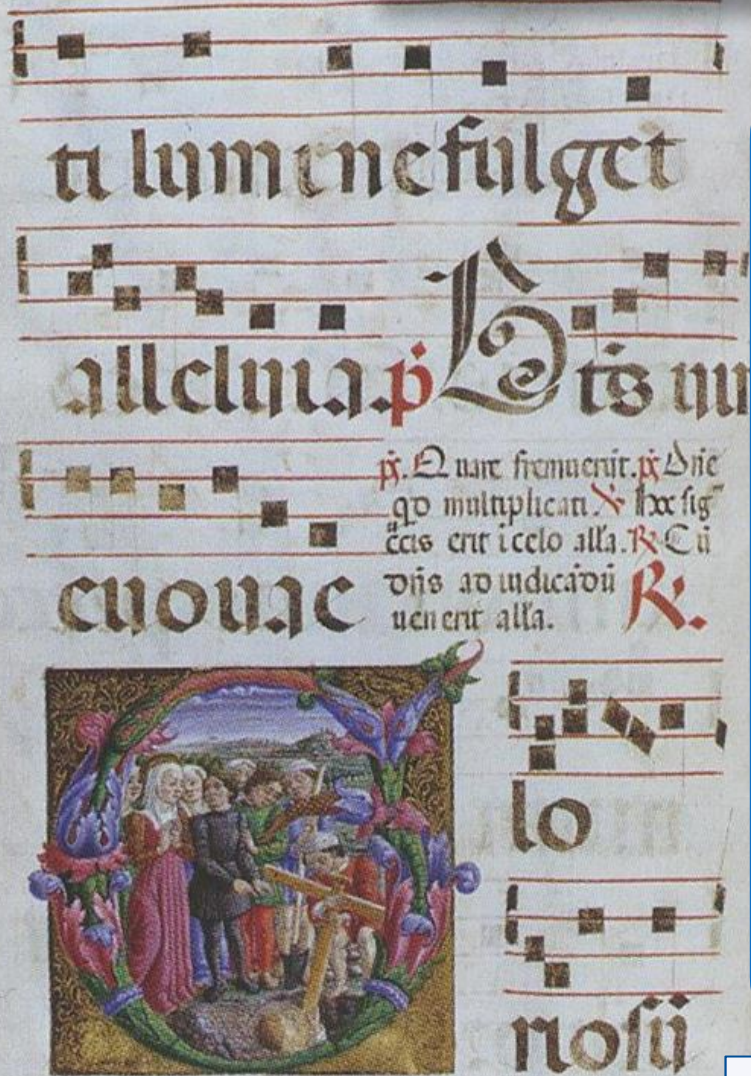 ti lumine fulget
alleluia. ps Bt̄s uir
euouae
ps. Quare fremuerūt. ps Dn̄e
qd multiplicati ℣ Hoc sig
cīs erit i celo all'a. ℟ Cū
dn̄s ad iudicādū
uenerit all'a. ℟.
lo
riosū